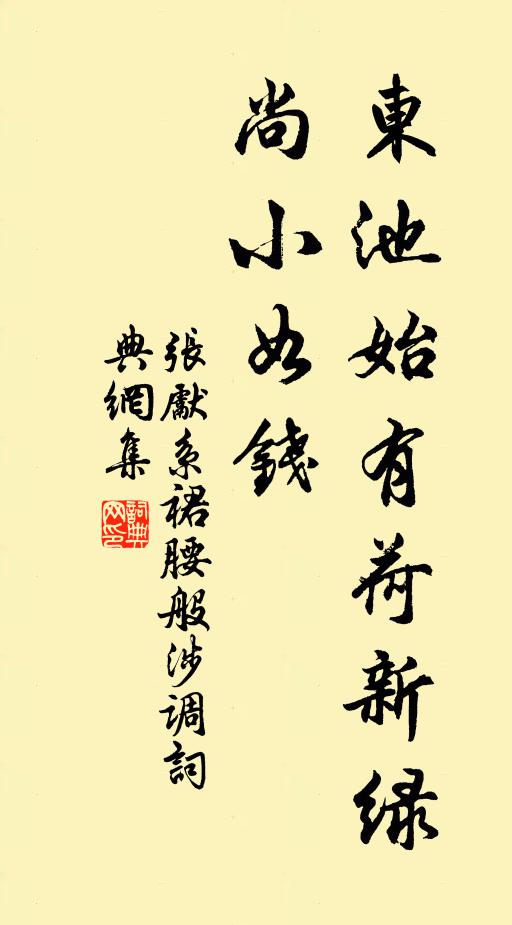 東池始有荷新绿
尚小如錢
張獻系裙腰般涉调詞
典網集
詞典
网印